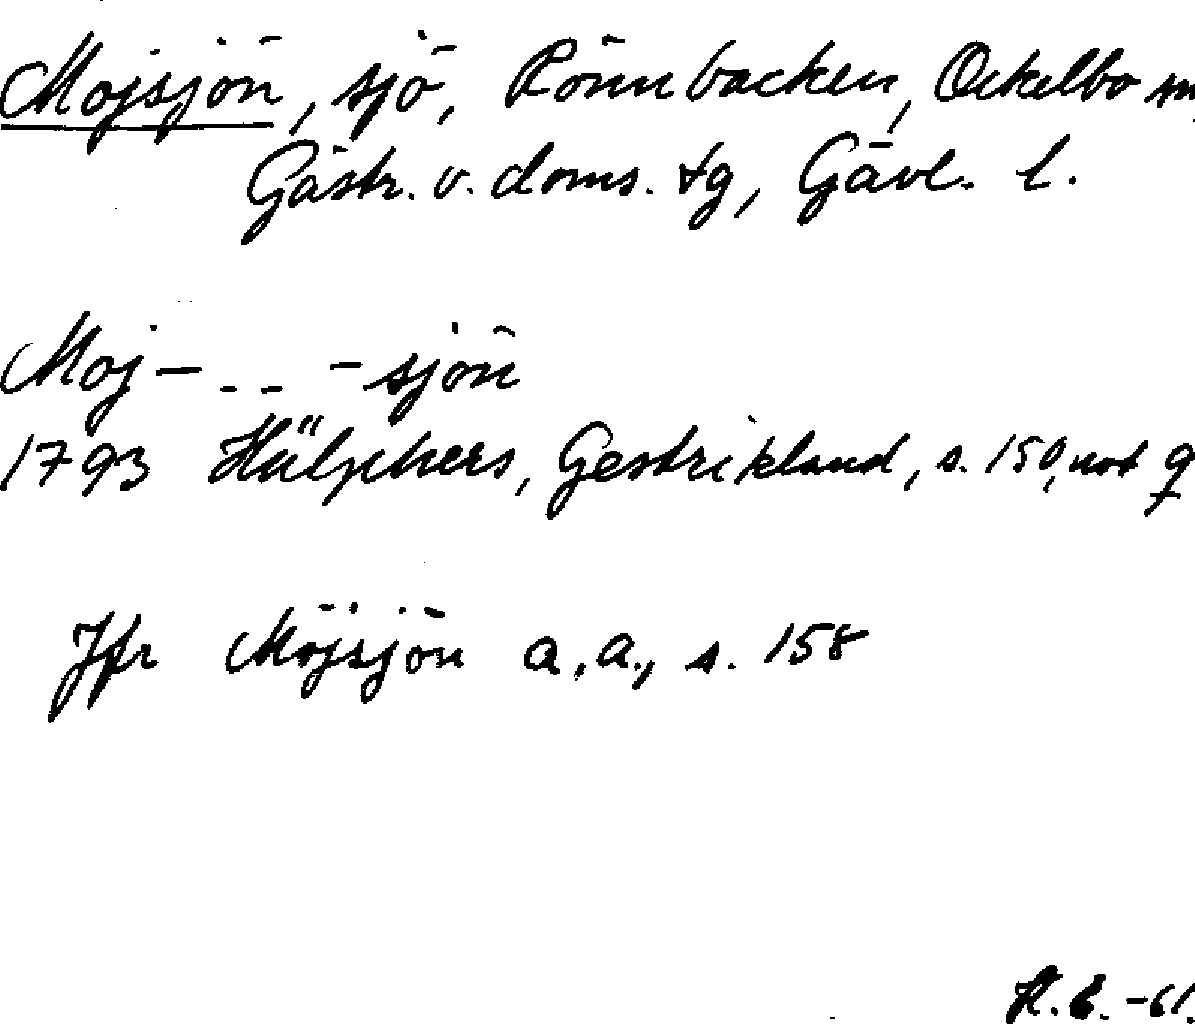 Mojsjön, sjö, Rönnbacken, Ockelbo sn,
Gästr. v. doms. tg, Gävl. l.
Moj– - - -sjön
1793 Hülphers, Gestrikland, s. 150, not q
Jfr Möjsjön a.a., s. 158
-61.